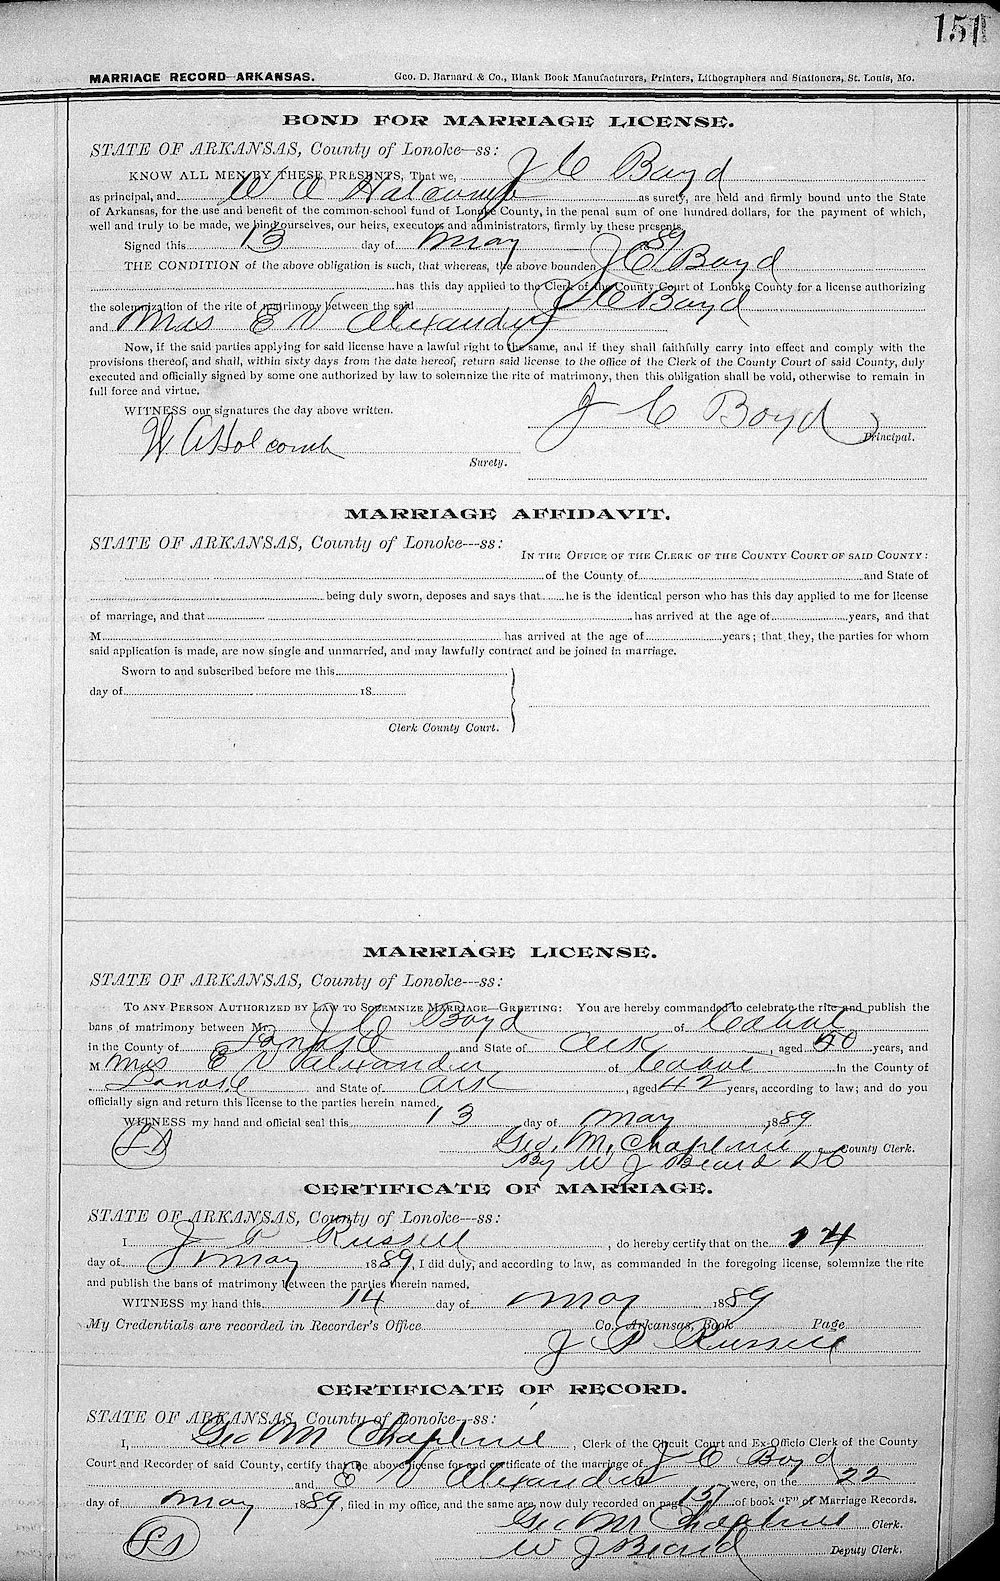 151
MARRIAGE RECORD—ARKANSAS. Geo. D. Barnard & Co., Blank Book Manufacturers, Printers, Lithographers and Stationers, St. Louis, Mo.
BOND FOR MARRIAGE LICENSE.
STATE OF ARKANSAS, County of Lonoke—ss:
KNOW ALL MEN BY THESE PRESENTS, That we, J C Boyd
as principal, and W A Halcomb as surety, are held and firmly bound unto the State
of Arkansas, for the use and benefit of the common-school fund of Lonoke County, in the penal sum of one hundred dollars, for the payment of which,
well and truly to be made, we bind ourselves, our heirs, executors and administrators, firmly by these presents.
Signed this 13 day of May 89
THE CONDITION of the above obligation is such, that whereas, the above bounden J C Boyd
has this day applied to the Clerk of the County Court of Lonoke County for a license authorizing
the solemnization of the rite of matrimony between the said J C Boyd
and Mrs E V Alexander
Now, if the said parties applying for said license have a lawful right to the same, and if they shall faithfully carry into effect and comply with the
provisions thereof, and shall, within sixty days from the date hereof, return said license to the office of the Clerk of the County Court of said County, duly
executed and officially signed by some one authorized by law to solemnize the rite of matrimony, then this obligation shall be void, otherwise to remain in
full force and virtue.
WITNESS our signatures the day above written.
J C Boyd Principal.
W A Holcomb
Surety.
MARRIAGE AFFIDAVIT.
STATE OF ARKANSAS, County of Lonoke---ss:
IN THE OFFICE OF THE CLERK OF THE COUNTY COURT OF SAID COUNTY:
of the County of and State of
being duly sworn, deposes and says that he is the identical person who has this day applied to me for license
of marriage, and that has arrived at the age of years, and that
M has arrived at the age of years; that they, the parties for whom
said application is made, are now single and unmarried, and may lawfully contract and be joined in marriage.
Sworn to and subscribed before me this
day of 18
Clerk County Court.
MARRIAGE LICENSE.
STATE OF ARKANSAS, County of Lonoke---ss:
TO ANY PERSON AUTHORIZED BY LAW TO SOLEMNIZE MARRIAGE—GREETING: You are hereby commanded to celebrate the rite and publish the
bans of matrimony between Mr. J C Boyd of Cabot
in the County of Lonoke and State of Ark, aged 50 years, and
M Mrs E V Alexander of Cabot in the County of
Lonoke and State of Ark, aged 42 years, according to law; and do you
officially sign and return this license to the parties herein named.
WITNESS my hand and official seal this 13 day of May 1889
LS Geo. M. Chapline County Clerk.
By W J Beard DC
CERTIFICATE OF MARRIAGE.
STATE OF ARKANSAS, County of Lonoke---ss:
I, J P Russell, do hereby certify that on the 14
day of May 1889, I did duly, and according to law, as commanded in the foregoing license, solemnize the rite
and publish the bans of matrimony between the parties therein named.
WITNESS my hand this 14 day of May 1889
My Credentials are recorded in Recorder's Office Co. Arkansas, Book Page
J P Russell
CERTIFICATE OF RECORD.
STATE OF ARKANSAS, County of Lonoke---ss:
I, Geo M Chapline, Clerk of the Circuit Court and Ex-Officio Clerk of the County
Court and Recorder of said County, certify that the above license for and certificate of the marriage of J C Boyd
and E V Alexander were, on the 22
day of May 1889, filed in my office, and the same are now duly recorded on page 151 of book "F" of Marriage Records.
Geo M Chapline Clerk.
LS W J Beard Deputy Clerk.